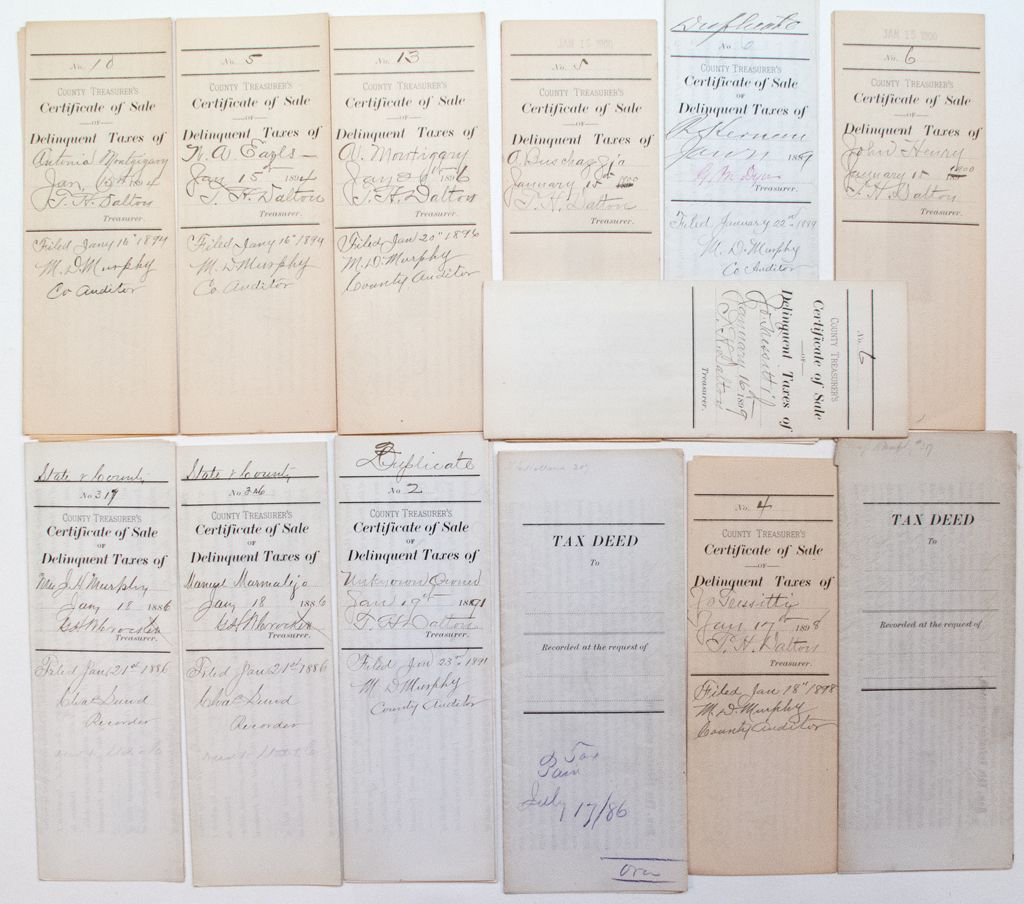 No. 10
COUNTY TREASURER'S
Certificate of Sale
OF
Delinquent Taxes of
Antonia Montgigary
Jan, 1894
T. H. Dalton
Treasurer.
Filed Jany 16" 1894
M. D. Murphy
Co Auditor
No. 5
COUNTY TREASURER'S
Certificate of Sale
OF
Delinquent Taxes of
Jan 15th 1894
T. H. Dalton
Treasurer.
Filed Jany 16" 1894
M. D. Murphy
Co. Auditor
No. 13
COUNTY TREASURER'S
Certificate of Sale
OF
Delinquent Taxes of
1896
T. H. Dalton
Treasurer.
Filed Jan 20" 1896
M. D. Murphy
County Auditor
JAN 15 1900
No. 5
COUNTY TREASURER'S
Certificate of Sale
OF
Delinquent Taxes of
January 15th 1900
T. H. Dalton
Treasurer.
Duplicate
No
COUNTY TREASURER'S
Certificate of Sale
OF
Delinquent Taxes of
188
Treasurer.
Filed January 22nd 1889
M. D. Murphy
Co Auditor
JAN 15 1900
No. 6
COUNTY TREASURER'S
Certificate of Sale
OF
Delinquent Taxes of
John Henry
January 15 1900
T. H. Dalton
Treasurer.
No. 6
COUNTY TREASURER'S
Certificate of Sale
OF
Delinquent Taxes of
January 16th 1899
T. H. Dalton
Treasurer.
State & County
No 319
COUNTY TREASURER'S
Certificate of Sale
OF
Delinquent Taxes of
Mrs J. H. Murphy
Jany 18 1886
Treasurer.
Filed Jan 21st 1886
Recorder
State & County
No 346
COUNTY TREASURER'S
Certificate of Sale
OF
Delinquent Taxes of
Jany 18 1886
Treasurer.
Filed Jan 21st 1886
Recorder
Duplicate
No 2
COUNTY TREASURER'S
Certificate of Sale
OF
Delinquent Taxes of
Unknown Owner
Jan 19th 1891
T. H. Dalton
Treasurer.
Filed Jan 23rd 1891
M. D. Murphy
County Auditor
TAX DEED
To
Recorded at the request of
Tax
July 17/86
No. 4
COUNTY TREASURER'S
Certificate of Sale
OF
Delinquent Taxes of
Jan 17th 1898
T. H. Dalton
Treasurer.
Filed Jan 18" 1898
M. D. Murphy
County Auditor
TAX DEED
To
Recorded at the request of